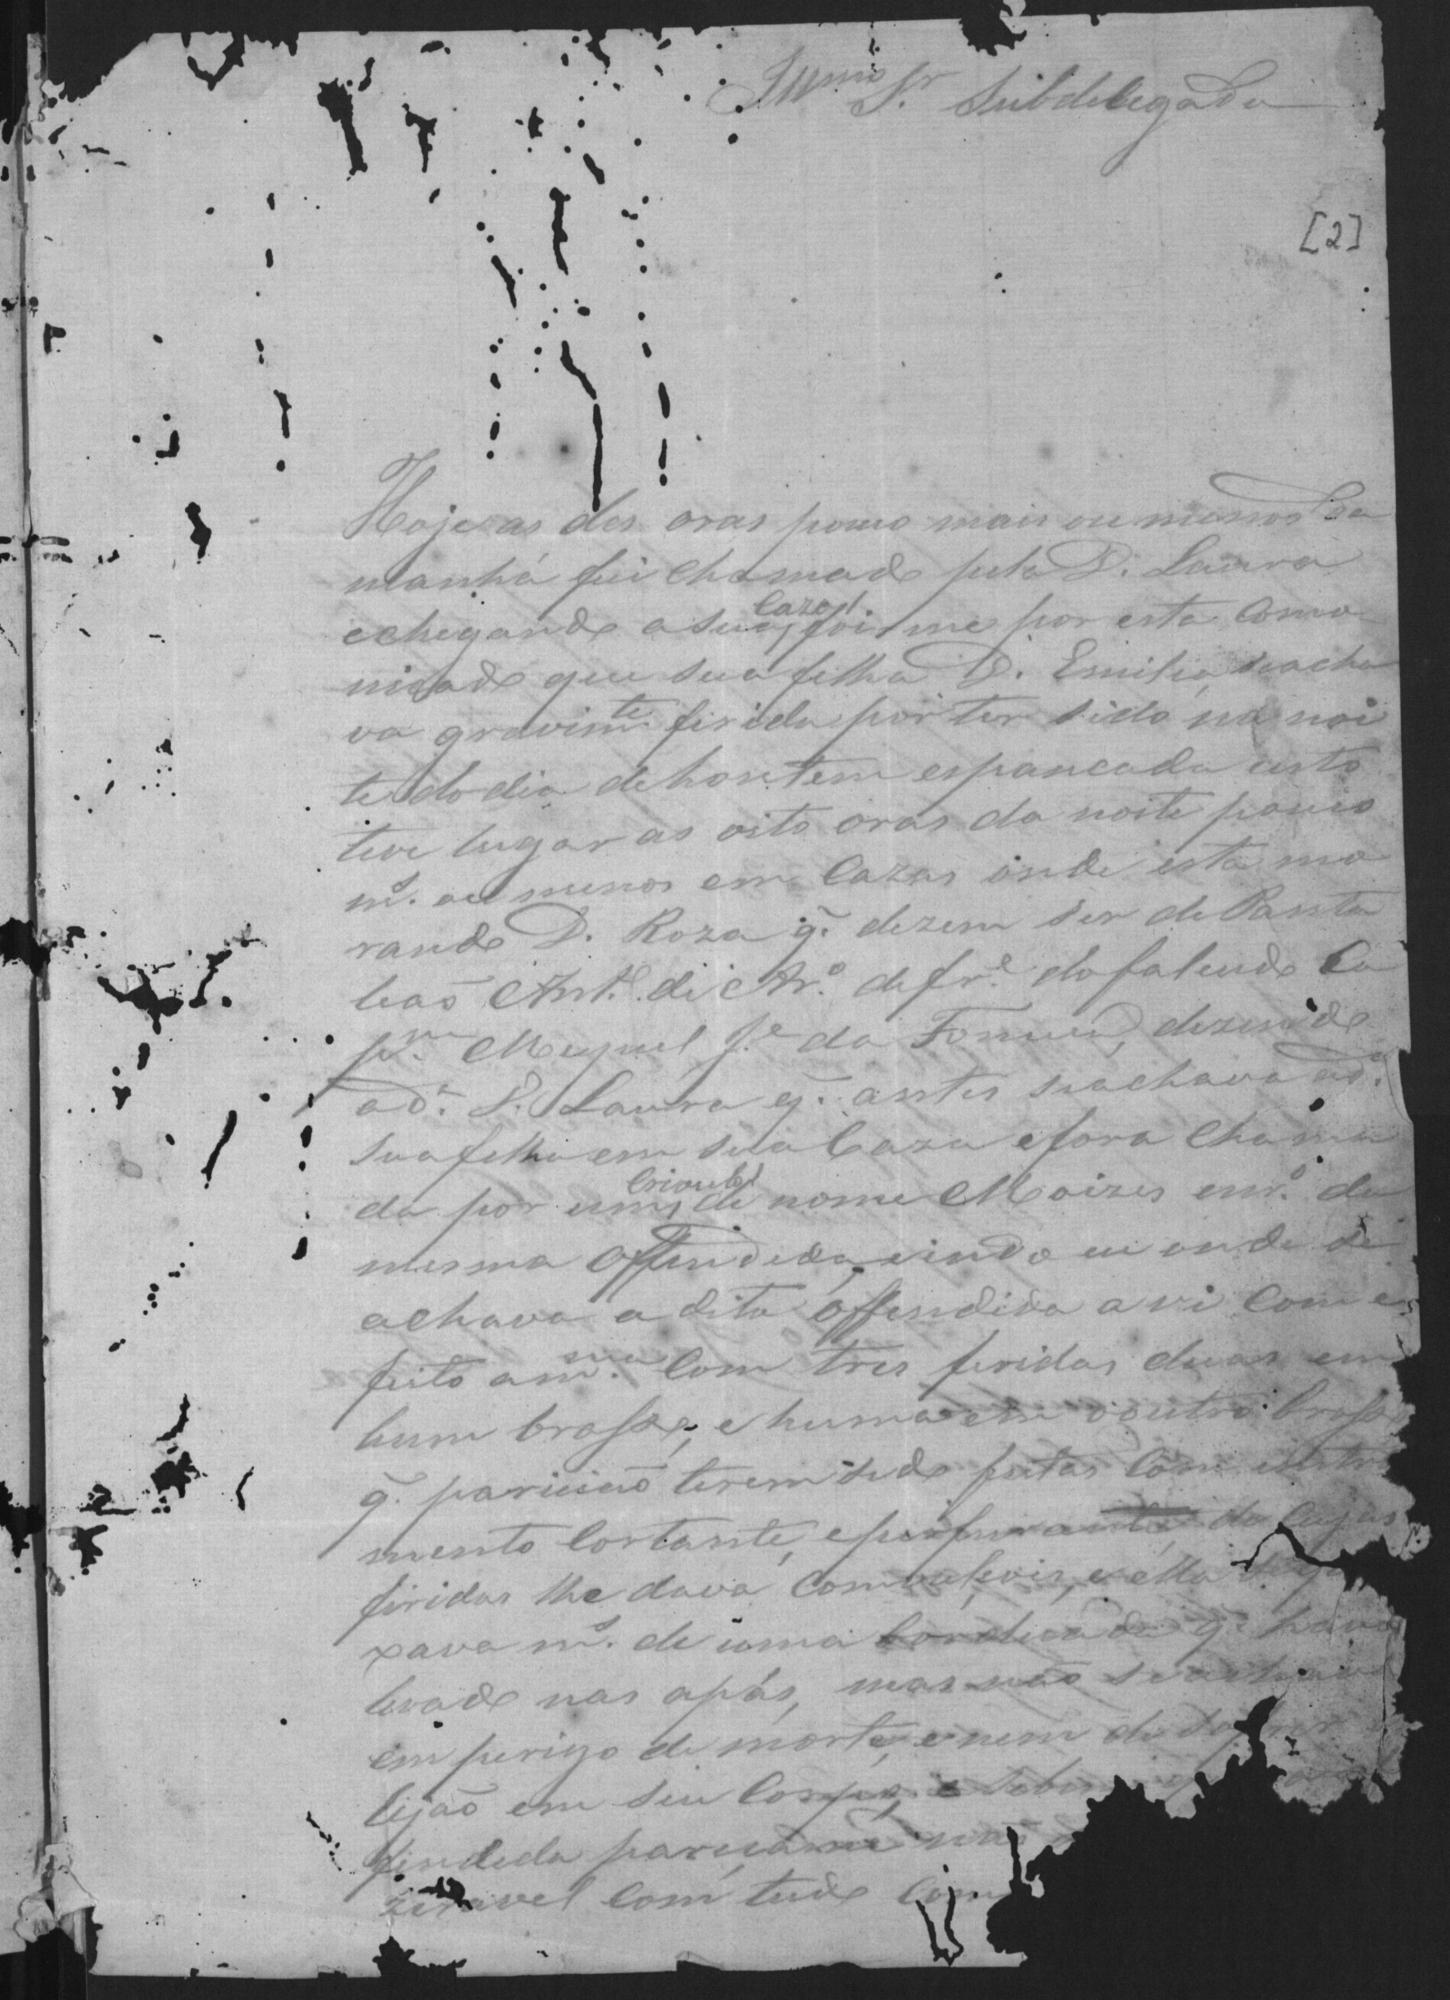 Illmo Sr Subdelegado
[2]
Hoje as des oras pouco mais ou menos da
manhã fui chamado pela D. Laura
e chegando a sua Caza foi-me por esta como
nicado que sua filha D. Emilia se acha
va gravimte ferida por ter sido na noi
te do dia de hontem espancada e isto
teve lugar as oito oras da noite pouco
ms. ou menos em Cazas onde esta mo
rando D. Roza q. dezem ser de Panta
leaõ Anto. de Aro. de fre. do falecido Ca
pm. Miguel Je. da , dezendo
a da. D. Laura q. antes se achava a da.
sua filha em sua Caza e fora chama
da por um Crioulo de nome Moizes da
mesma Offendida, e indo eu onde se
achava a dita offendida a vi com e
feito a msma. Com tres feridas duas em
hum brasso, e huma em o outro brasso
q. pariciaõ terem sido feitas Com instru
mento Cortante, e perfurante de cujas
firidas lhe dava e ella
xava ms. de uma q. havia
levado nas apás, mas naõ se achava
em perigo de morte, e nem de
lejaõ em seu Corpo, e sobre
fendida naõ
zeravel Com tudo Com